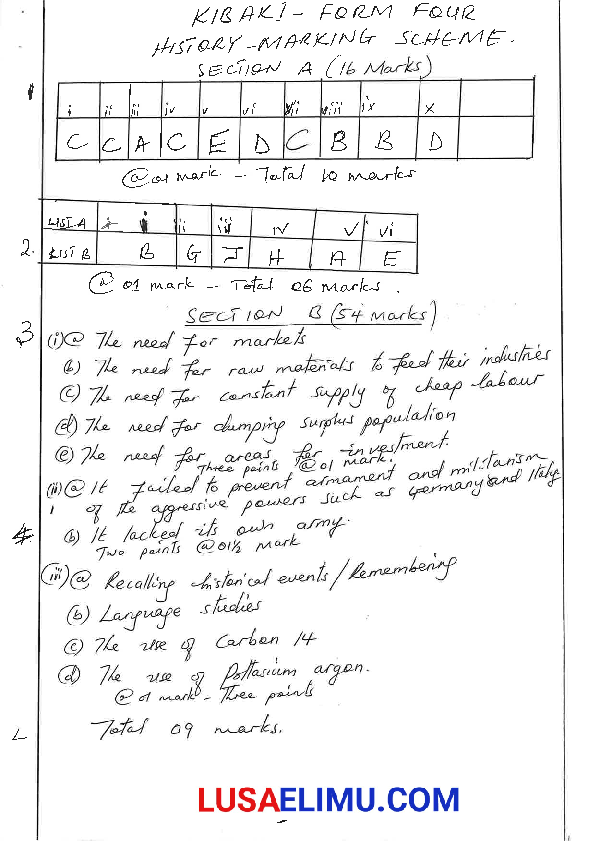 KIBAKI - FORM FOUR
HISTORY - MARKING SCHEME.
SECTION A (16 Marks)
1 i ii iii iv v vi vii viii ix x
C C A C E D C B B D
@ 01 mark - Total 10 marks
LIST A i ii iii iv v vi
2. LIST B B G J H A E
@ 01 mark - Total 06 marks.
SECTION B (54 Marks)
3 (i) @ The need for markets
(b) The need for raw materials to feed their industries
(c) The need for constant supply of cheap labour
(d) The need for dumping surplus population
(e) The need for areas for investment.
Three points @ 01 mark.
(ii) @ It failed to prevent armament and militarism
of the aggressive powers such as Germany and Italy
(b) It lacked its own army.
Two points @ 01½ mark
(iii) @ Recalling historical events / Remembering
(b) Language studies
(c) The use of Carbon 14
(d) The use of Pottasium argon.
@ 01 mark - Three points
Total 09 marks.
LUSAELIMU.COM